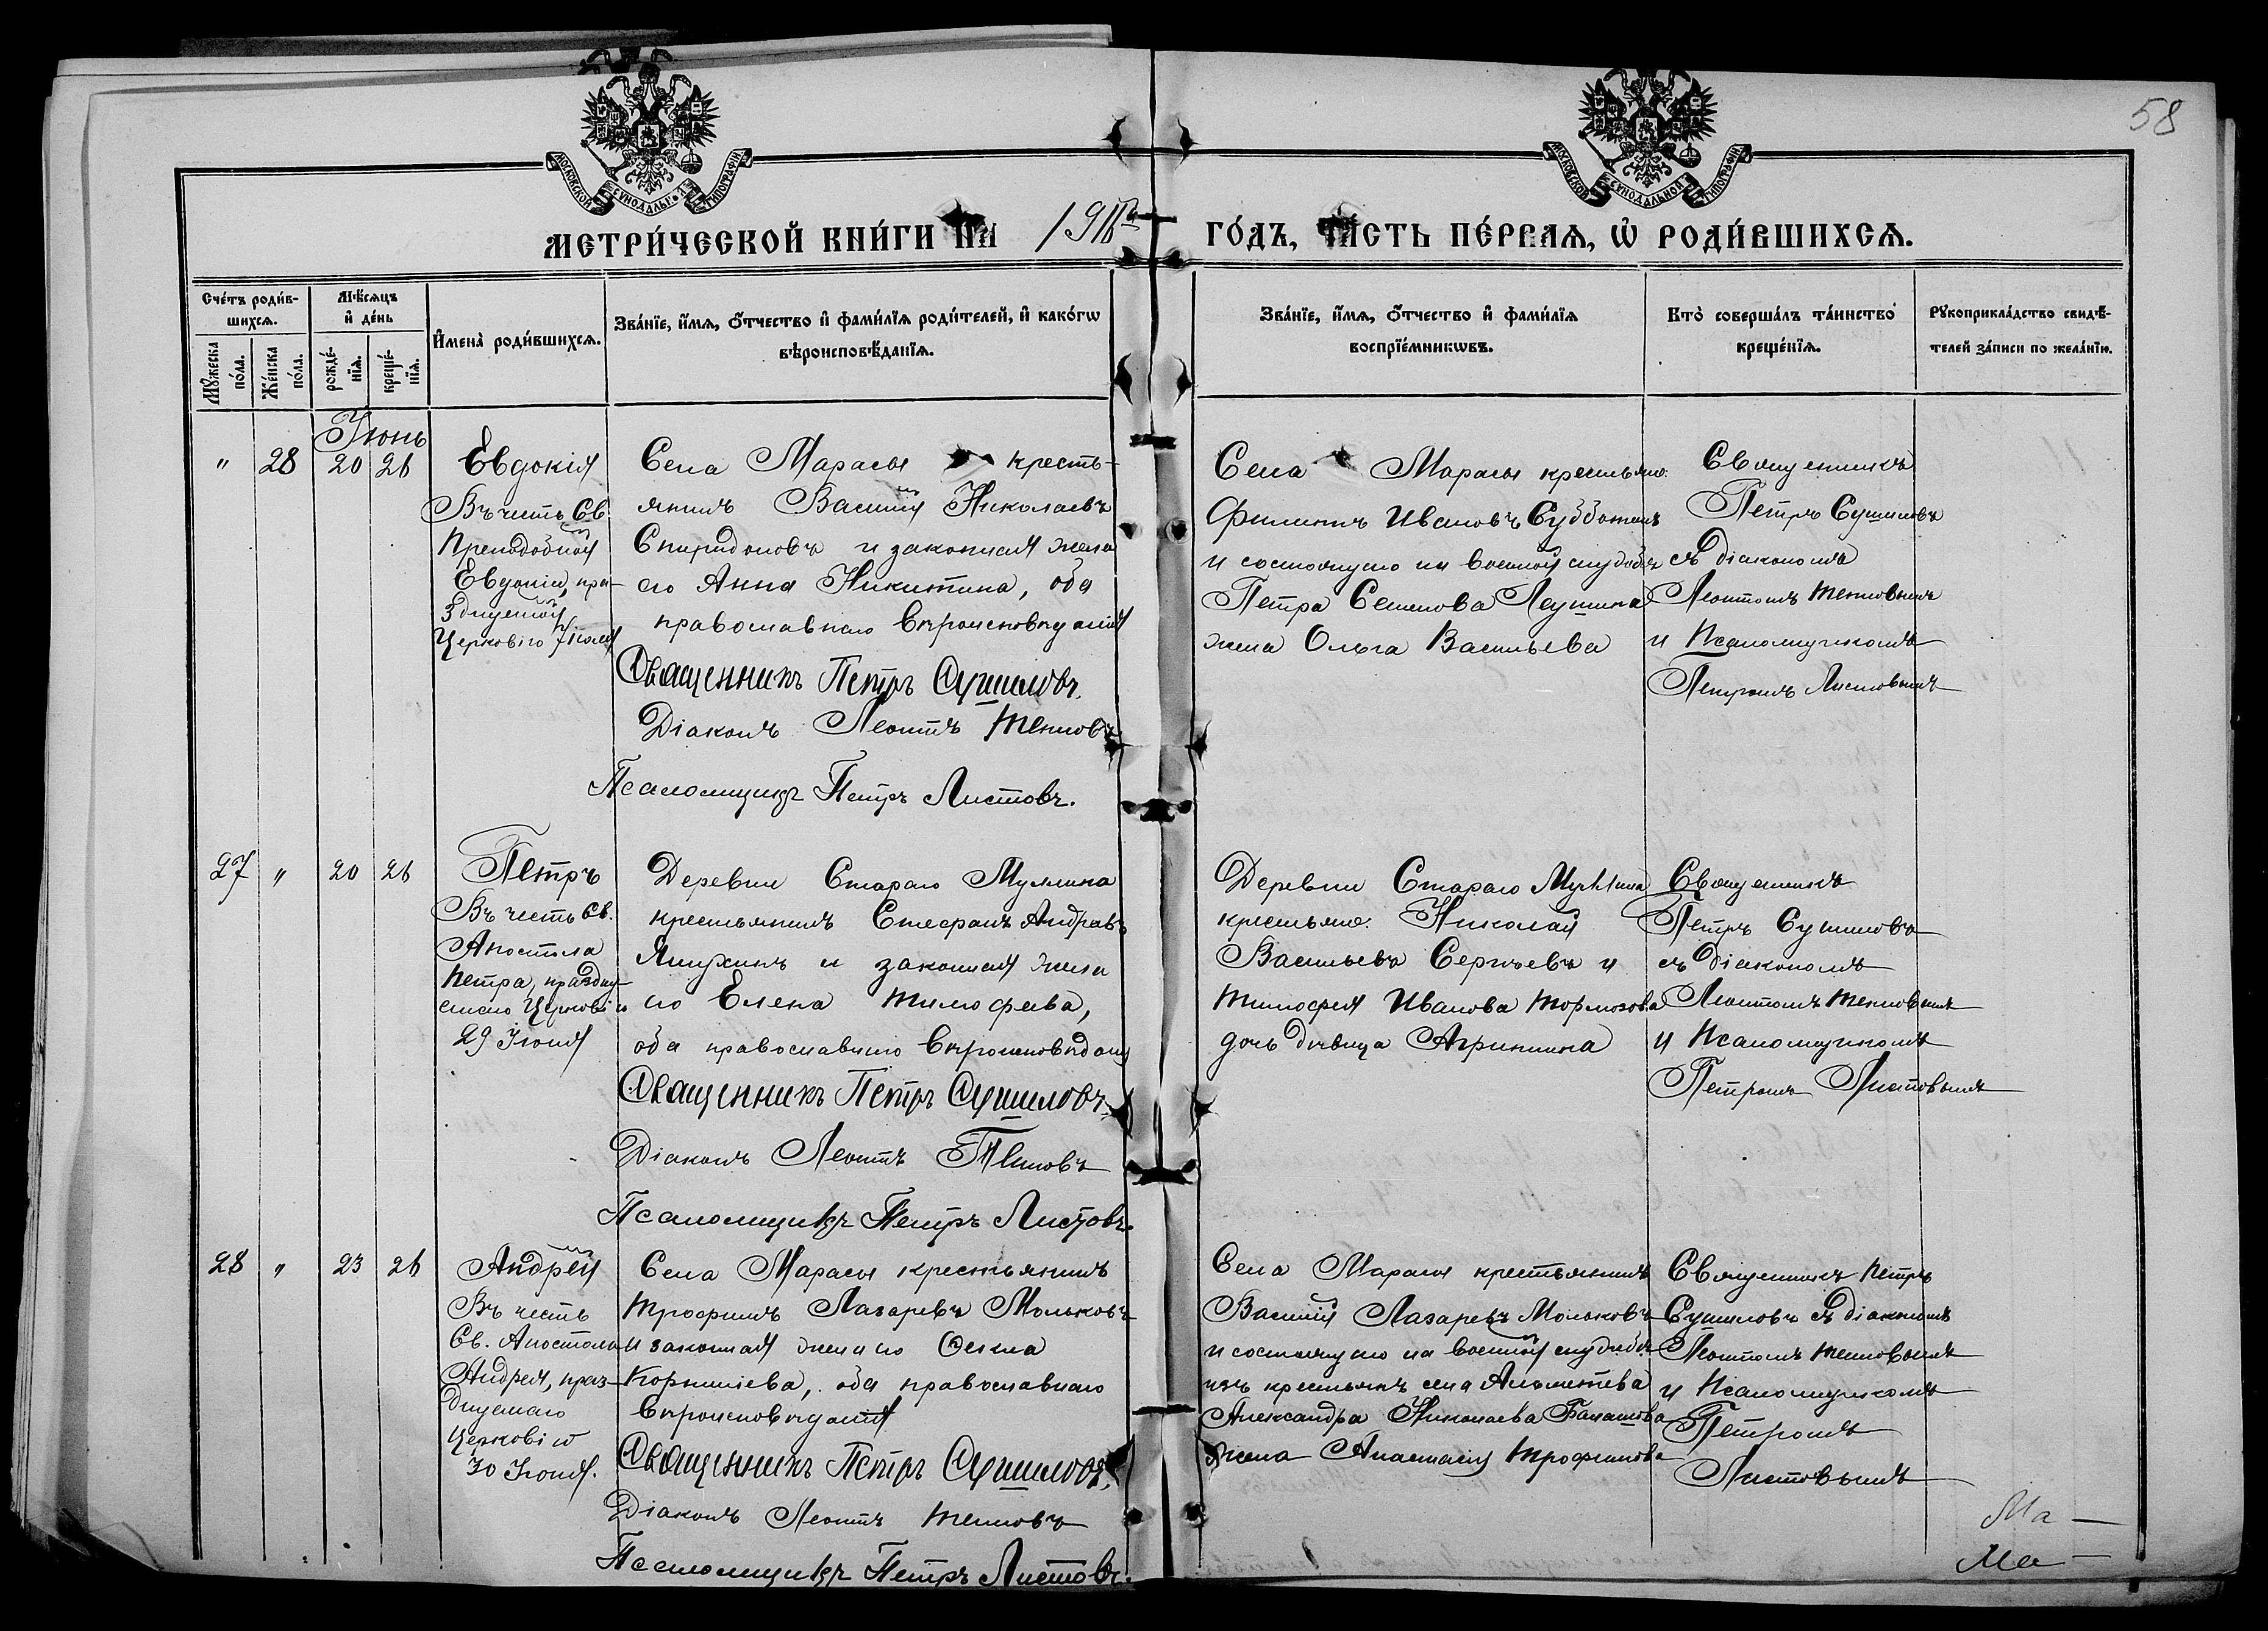 58
МОСКОВСКОЙ СѴНОДАЛЬНОЙ ТИПОГРАФІИ
МОСКОВСКОЙ СѴНОДАЛЬНОЙ ТИПОГРАФІИ
МЕТРИ́ЧЕСКОЙ КНИ́ГИ НА
ГО́ДЪ, ЧА́СТЬ ПЕ́РВАѦ, Ѽ РОДИ́ВШИХСѦ.
Сче́тъ роди́в-
шихсѧ.
Мѣ́сѧцъ
и҆ де́нь
Мꙋ́жеска
по́ла.
Же́нска
по́ла.
рожде́-
нїѧ.
креще́-
нїѧ.
И҆мена̀ роди́вшихсѧ.
Зва́нїе, и҆́мѧ, ѻ҆́тчество и҆ фами́лїѧ роди́телей, и҆ како́гѡ
вѣроисповѣ́данїѧ.
Зва́нїе, и҆́мѧ, ѻ҆́тчество и҆ фами́лїѧ
воспрїе́мникѡвъ.
Кто̀ соверша́лъ та́инство
креще́нїѧ.
Рꙋкоприкла́дство свидѣ́-
телей за́писи по жела́нїю.
Іюнь
" 28 20 26
Евдокія
Въ честь Св.
Преподобной
Евдокіи, пра-
зднуемой
Церковію 7 Іюля
Села Марасы кресть-
янинъ Василій Николаевъ
Спиридоновъ и законная жена
его Анна Никитина, оба
православнаго вѣроисповѣданія
Священникъ Петръ Сушиловъ.
Діаконъ Леонтъ Тепловъ
Псаломщикъ Петръ Листовъ.
Села Марасы крестьяне:
Филиппъ Ивановъ Субботинъ
и состоящаго на военной службѣ
Петра Семенова Леушина
жена Ольга Васильева
Священникъ
Петръ Сушиловъ
съ діакономъ
Леонтомъ Тепловымъ
и Псаломщикомъ
Петромъ Листовымъ
27 " 20 26
Петръ
Въ честь Св.
Апостола
Петра, праздну-
емаго Церковію
29 Іюня
Деревни Стараго
крестьянинъ Стефанъ
и законная жена
его Елена Тимофеева,
оба православнаго вѣроисповѣданія
Священникъ Петръ Сушиловъ
Діаконъ Леонтъ Тепловъ
Псаломщикъ Петръ Листовъ.
Деревни Стараго
крестьяне: Николай
Васильевъ Сергѣевъ и
Тимофея Иванова Тормозова
дочь дѣвица Агрипина
Священникъ
Петръ Сушиловъ
съ діакономъ
Леонтомъ Тепловымъ
и Псаломщикомъ
Петромъ Листовымъ
28 " 23 26
Андрей
Въ честь
Св. Апостола
Андрея, праз-
днуемаго
Церковію
30 Іюня.
Села Марасы крестьянинъ
Трофимъ Лазаревъ Мольковъ
и законная жена его Фекла
Корниліева, оба православнаго
вѣроисповѣданія
Священникъ Петръ Сушиловъ.
Діаконъ Леонтъ Тепловъ
Псаломщикъ Петръ Листовъ.
Села Марасы крестьянинъ
Василій Лазаревъ Мольковъ
и состоящаго на военной службѣ
изъ крестьянъ села
Александра Николаева Балашова
жена Анастасія Трофимова
Священникъ Петръ
Сушиловъ съ діакономъ
Леонтомъ Тепловымъ
и Псаломщикомъ
Петромъ
Листовымъ